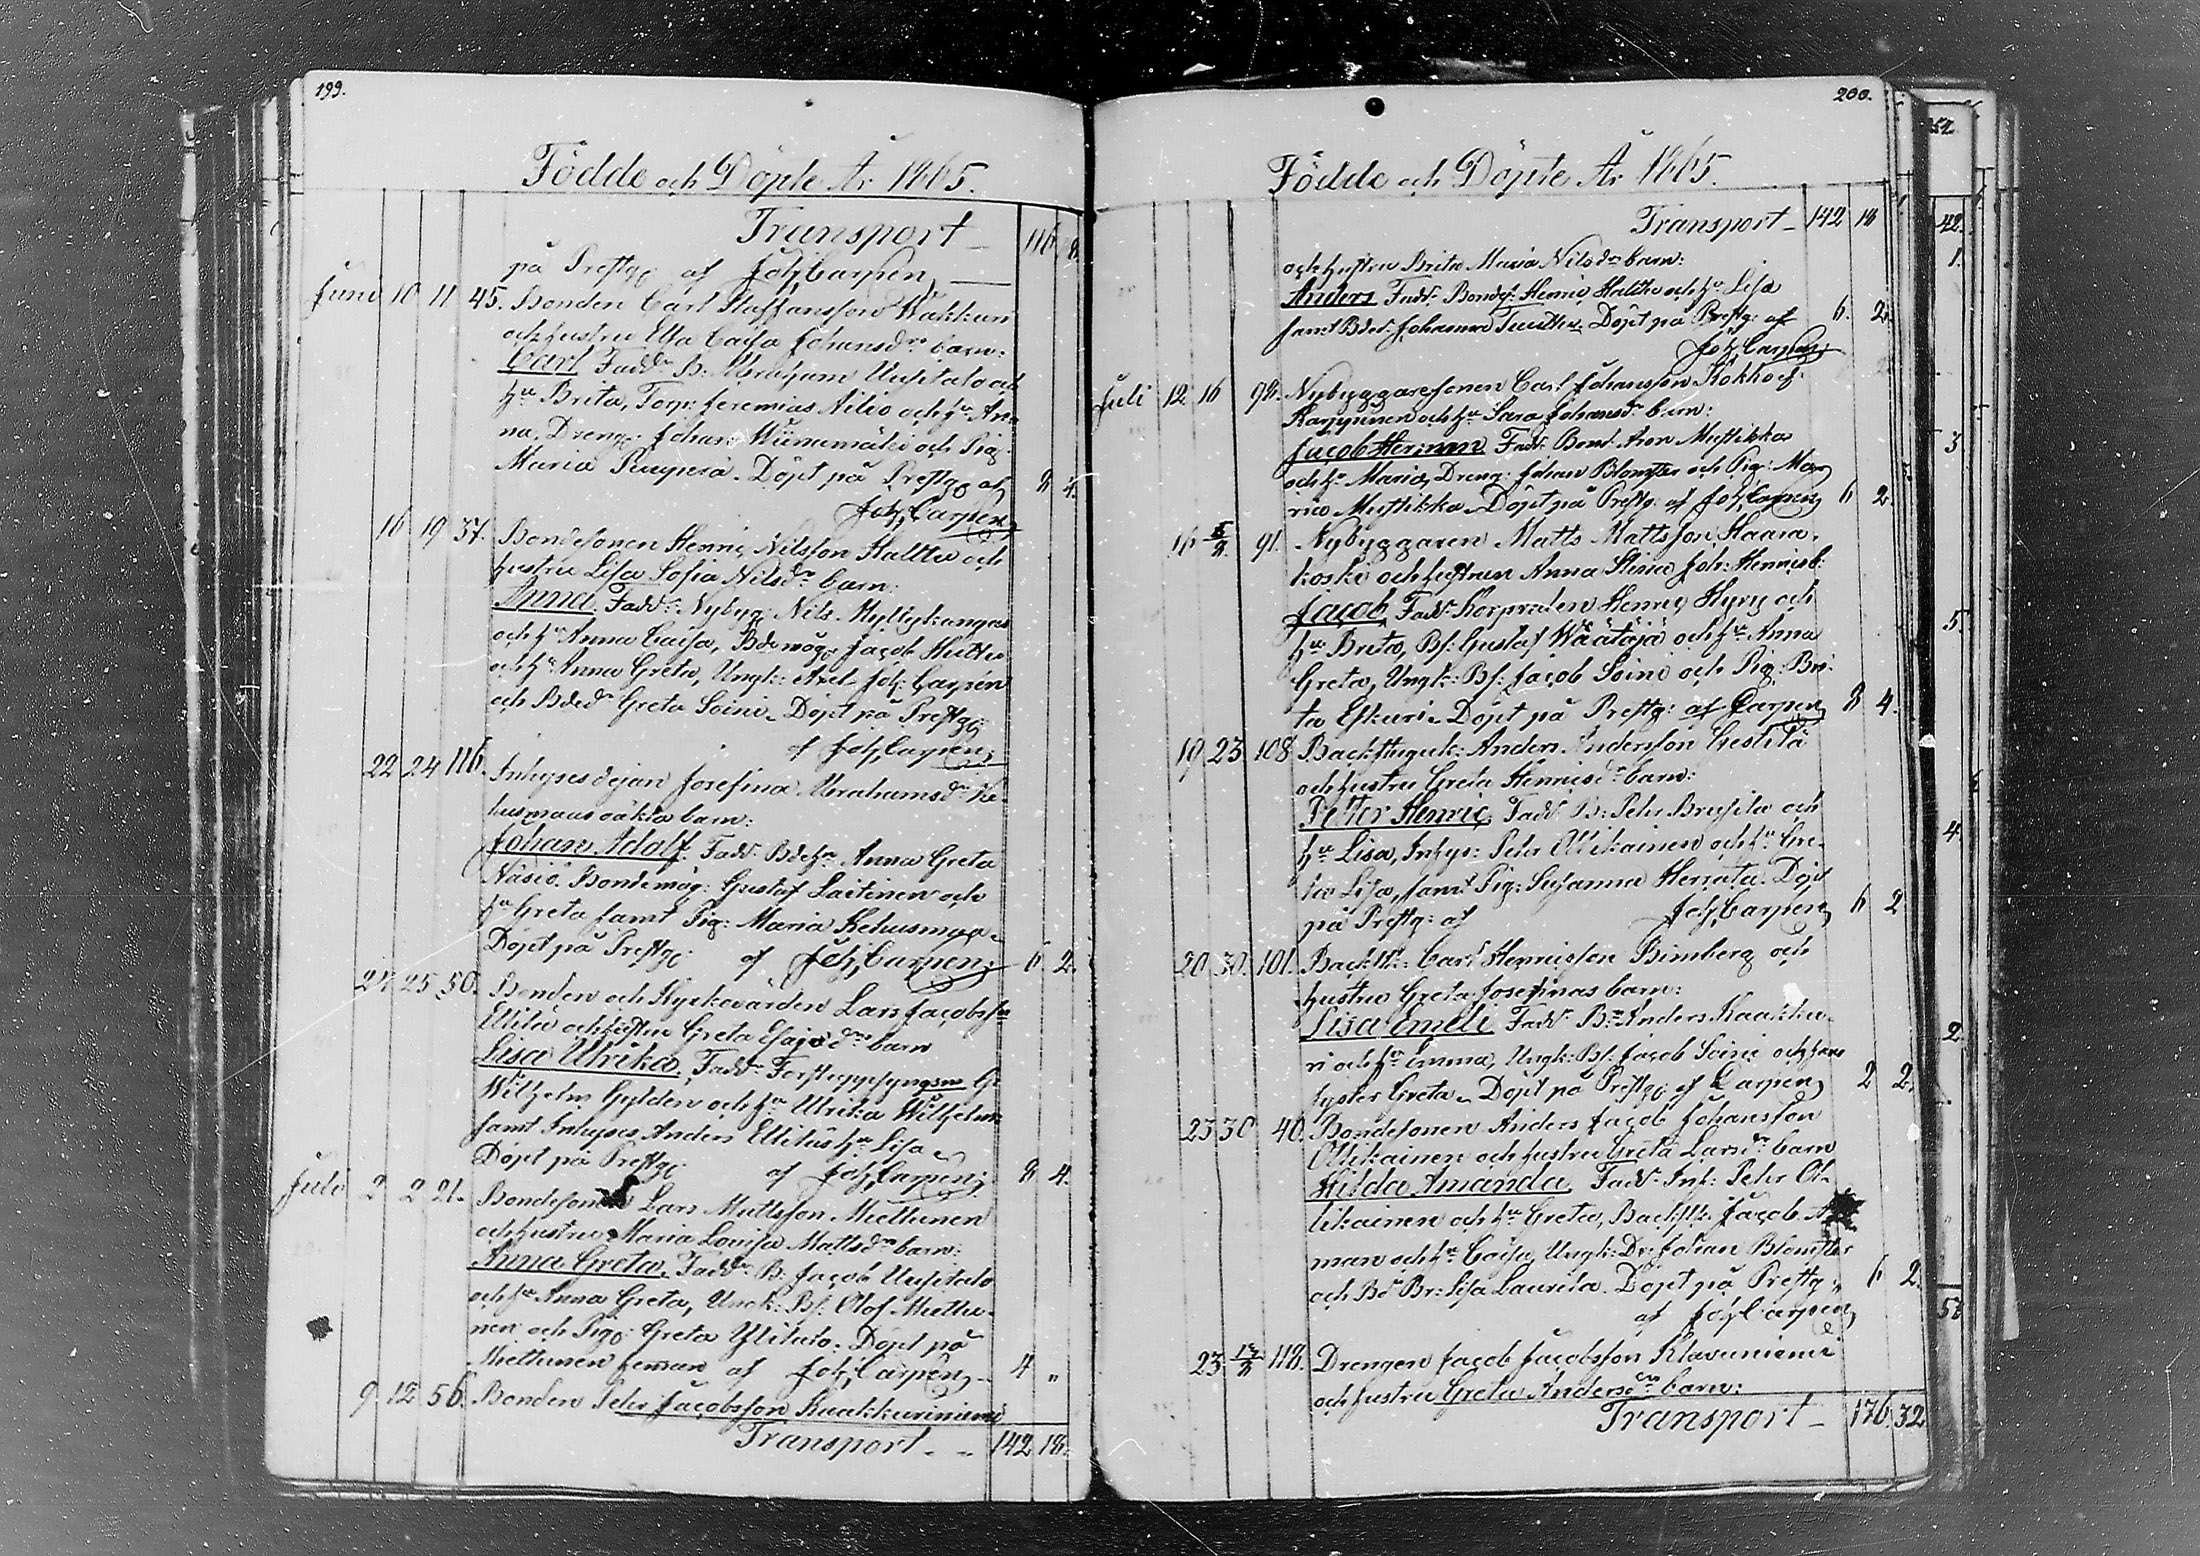 199.
Födde och Döpte År 1865.
Transport 116. 8.
på Prestg: af Joh, Carpen,
Juni 10 11 45. Bonden Carl Staffansson Wakkuri
och hustru Ulla Caisa Johansdr barn:
Carl Fadd: B: Abraham Uusitalo och
hu Brita, Torp: Jeremias Niliö och hu An-
na, Dreng: Johan Wiinamäki och Pig:
Maria Puuperä. Döpt på Prestg: af 8 4.
Joh, Carpen,
16 19 37. Bondesonen Henric Nilsson Halttu och
hustru Lisa Sofia Nilsdr barn:
Anna. Fadd: Nybyg: Nils Myllykangas
och hu Anna Caisa, Bdemåg: Jacob Huttu
och hu Anna Greta, Ungk: Axel Joh: Carpén
och Bdedr Greta Soini. Döpt på Prestg:
af Joh, Carpen,
22 24 116. Inhysesdejan Josefina Abrahamsdr Ke-
husmaas oäkta barn:
Johan Adolf. Fadd: Bdehu Anna Greta
Näsiö. Bondemåg: Gustaf Laitinen och
hu Greta samt Pig: Maria Kehusmaa.
Döpt på Prestg: af Joh, Carpen, 6. 2.
24 25 50. Bonden och Kyrkovärden Lars Jacobsson
Ellilä och hustru Greta Esaiædr barn
Lisa Ulrika. Fadd: Forstuppsyngsm G:
Wilhelm Gylden och hu Ulrika Wilhelmina
samt Inhyses Anders Ellilüs hu Lisa
Döpt på Prestg: af Joh, Carpen, 8 4.
Juli 2 2 21. Bondesonen Lars Mattsson Miettunen
och hustru Maria Lovisa Mattsdr barn:
Anna Greta. Fadd: B: Jacob Uusitalo
och hu Anna Greta, Ungk: Bs: Olof Miettu-
nen och Pig: Greta Ylitalo. Döpt på
Miettunen hemman af Joh, Carpén, 4 „
9. 12 56. Bonden Pehr Jacobsson Kaakkuriniemi
Transport 142 18.
200.
Födde och Döpte År 1865.
Transport 142 18
och hustru Brita Maria Nilsdr barn:
Anders Fadd: Bondes: Henric Halttu och hu Lisa
samt Bded: Johanna Tuutti. Döpt på Prestg: af 6. 2.
Joh, Carpen,
Juli 12 16 98. Nybyggaresonen Carl Johansson Kokko ej:
Karppinen och hu Sara Johansdr barn:
Jacob Herman Fadd: Bond. Aron Mustikka
och hu Maria, Dreng: Johan Blomster och Pig: Ma-
ria Mustikka. Döpt på Prestg: af Joh, Carpen, 6 2.
16 6/8. 91. Nybyggaren Matts Mattsson Haara-
koski och hustrun Anna Stina Joh: Hennis b:
Jacob, Fadd: Korpralen Henric Hyry och
hu Brita, Bs: Gustaf Wäätäjä och hu Anna
Greta, Ungk: Bs: Jacob Soini och Pig: Bri-
ta Eskuri. Döpt på Prestg: af Carpen, 8 4.
19 23 108 Backstuguk: Anders Andersson Gestilä
och hustru Greta Hennicsdr barn:
Petter Henric. Fadd: B: Pehr Brusila och
hu Lisa, Inhys: Pehr Ollikainen och hu Gre-
ta Lisa, samt Pig: Susanna Herrata. Döpt
på Prestg: af Joh, Carpen, 6 2.
20 30. 101. Backst: Carl Henricsson Bimberg och
hustru Greta Josefinas barn:
Lisa Emeli Fadd: B: Anders Kaakku-
ri och hu Emma, Ungk: Bs: Jacob Soini och hans
syster Greta. Döpt på Prestg: af Carpen, 2 2.
23 30 40. Bondesonen Anders Jacob Johansson
Ollikainen och hustru Greta Larsdr barn
Hilda Amanda. Fadd: Inh: Pehr Ol-
likainen och hu Greta, Backst: Jacob
man och hu Caisa, Ungk: Dr: Johan Blomster
och Bd Br: Lisa Laurila. Döpt på Prestg: 6 2.
af Joh, Carpen,
23 13/8 118. Drengen Jacob Jacobsson Klavuniemi
och hustru Greta Andersdr barn:
Transport 176. 32
42.
1.
3
5.
4.
2.